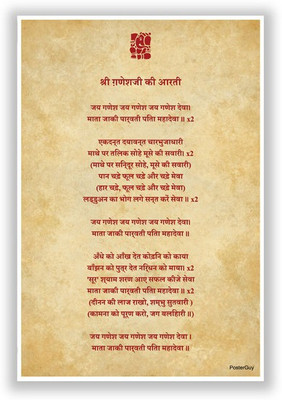 श्री ग़णेशजी की आरती
जय गणेश जय गणेश जय गणेश देवा।
माता जाकी पार्वती पिता महादेवा ॥ x2
एकदन्त दयावन्त चारभुजाधारी
माथे पर तिलक सोहे मूसे की सवारी। x2
(माथे पर सिन्दूर सोहे, मूसे की सवारी)
पान चढ़े फूल चढ़े और चढ़े मेवा
(हार चढ़े, फूल चढ़े और चढ़े मेवा)
लड्डुअन का भोग लगे सन्त करें सेवा ॥ x2
जय गणेश जय गणेश जय गणेश देवा।
माता जाकी पार्वती पिता महादेवा ॥
अँधे को आँख देत कोढ़िन को काया
बाँझन को पुत्र देत निर्धन को माया। x2
'सूर' श्याम शरण आए सफल कीजे सेवा
माता जाकी पार्वती पिता महादेवा ॥ x2
(दीनन की लाज राखो, शम्भु सुतवारी )
(कामना को पूरण करो, जग बलिहारी ॥)
जय गणेश जय गणेश जय गणेश देवा ।
माता जाकी पार्वती पिता महादेवा ॥
PosterGuy